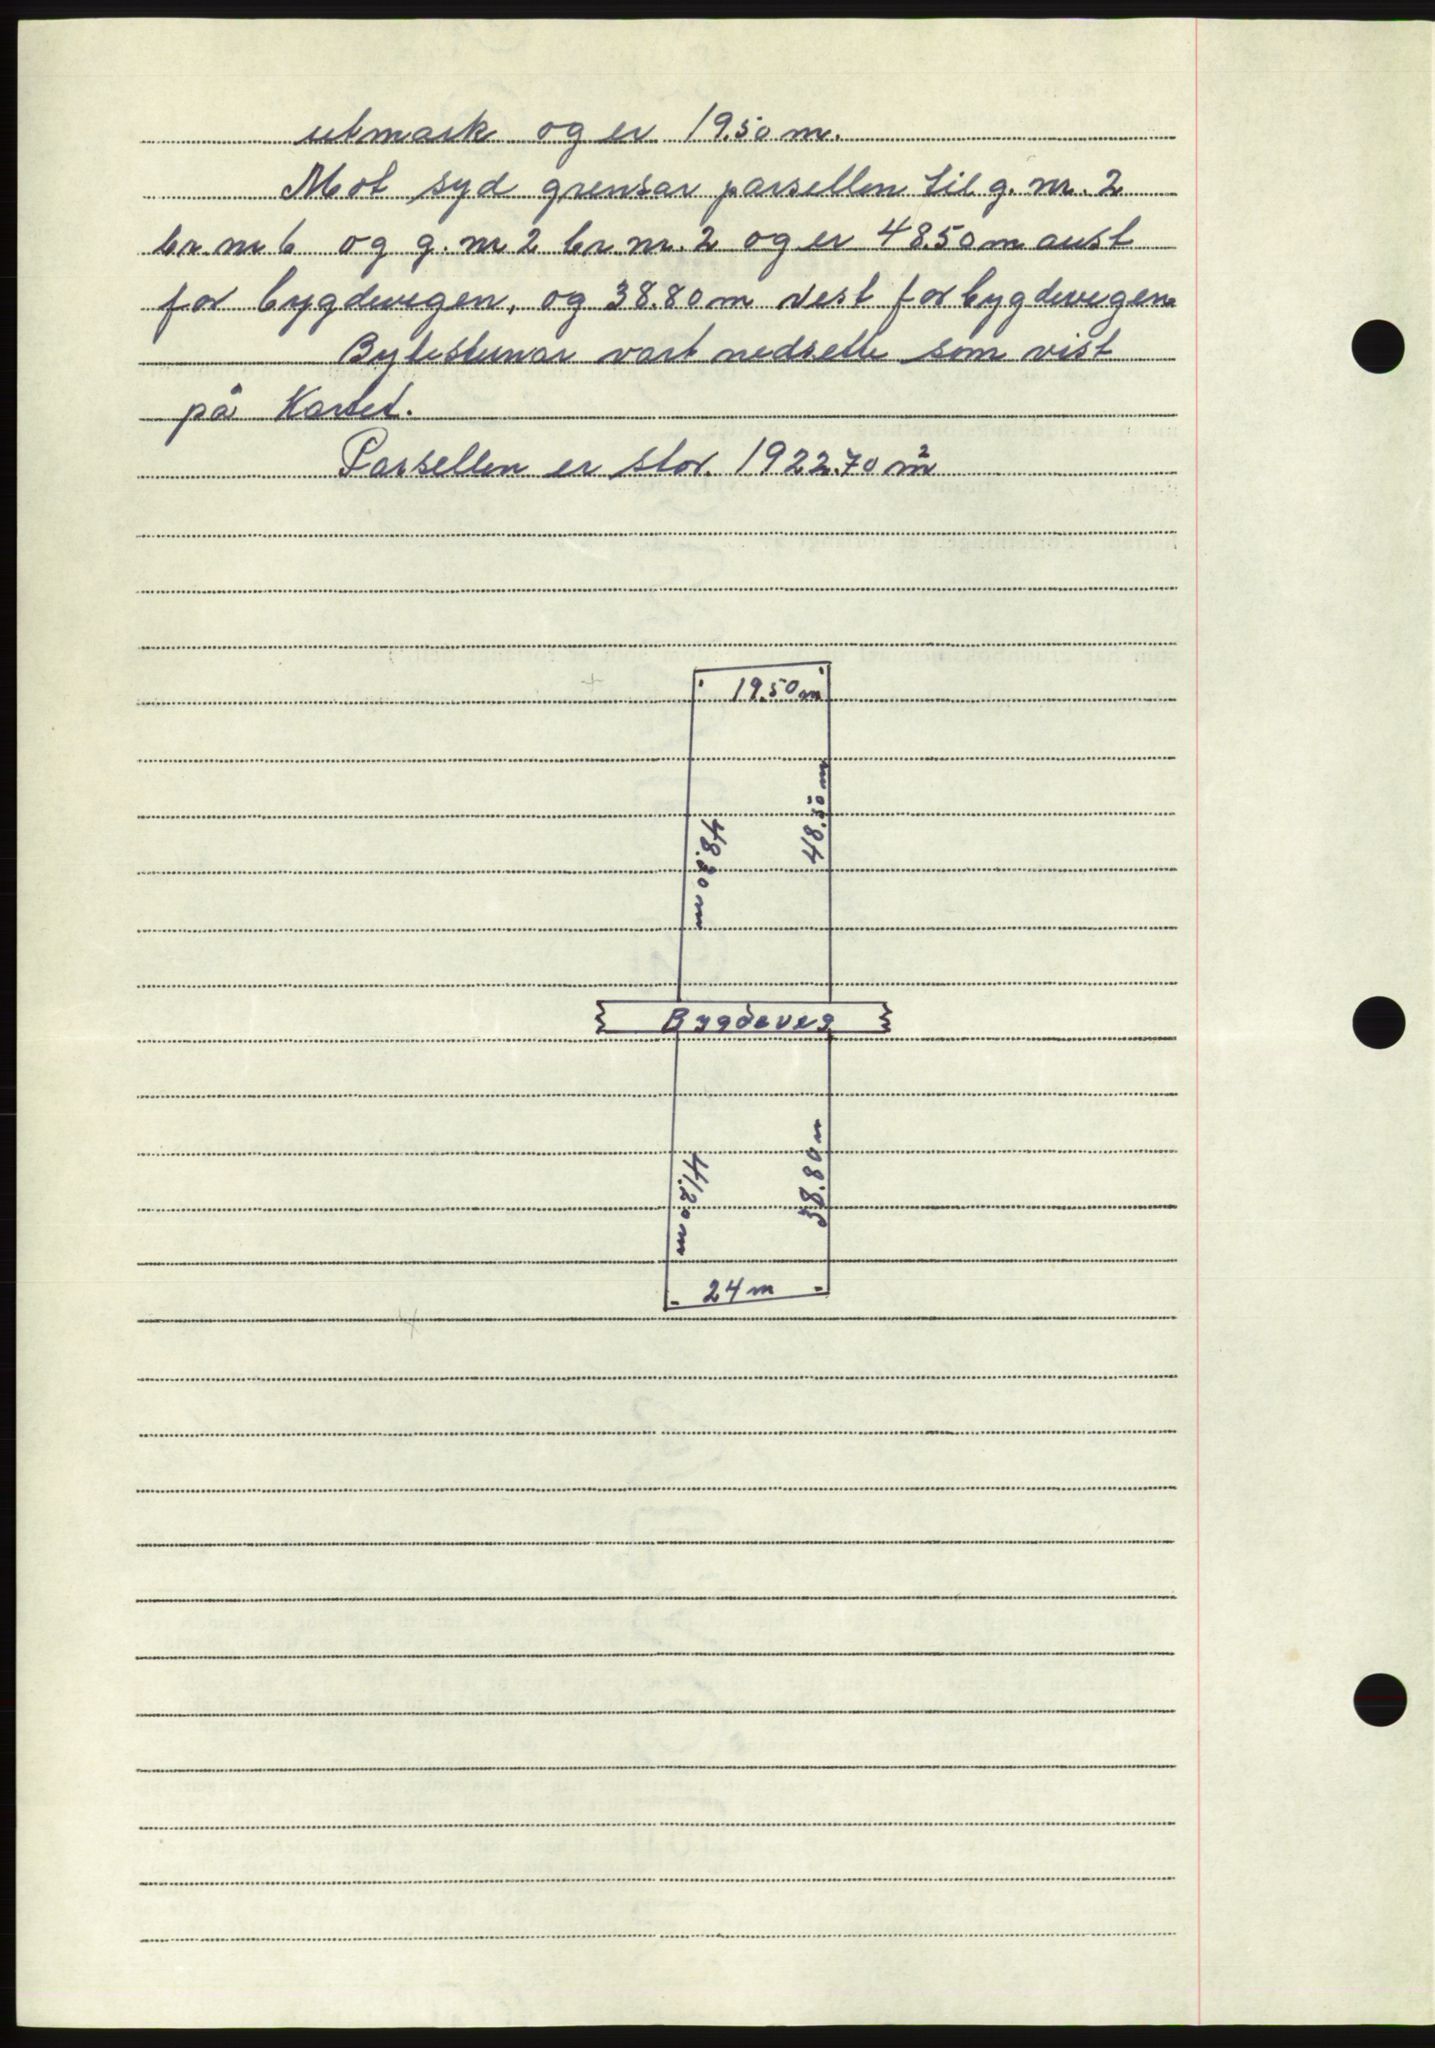 utmark og er 19.50 m.
Mot syd grensar parsellen til g. nr. 2
br. nr 6 og g. nr 2 br. nr. 2 og er 48.50 m aust
for bygdevegen, og 38.80 m vest for bygdevegen
Bytesteinar vart nedsette som vist
på Kartet.
Parsellen er stor. 1922.70 m²
19.50 m
48.20 m
48.50 m
Bygdeveg
41.20 m
38.80 m
24 m